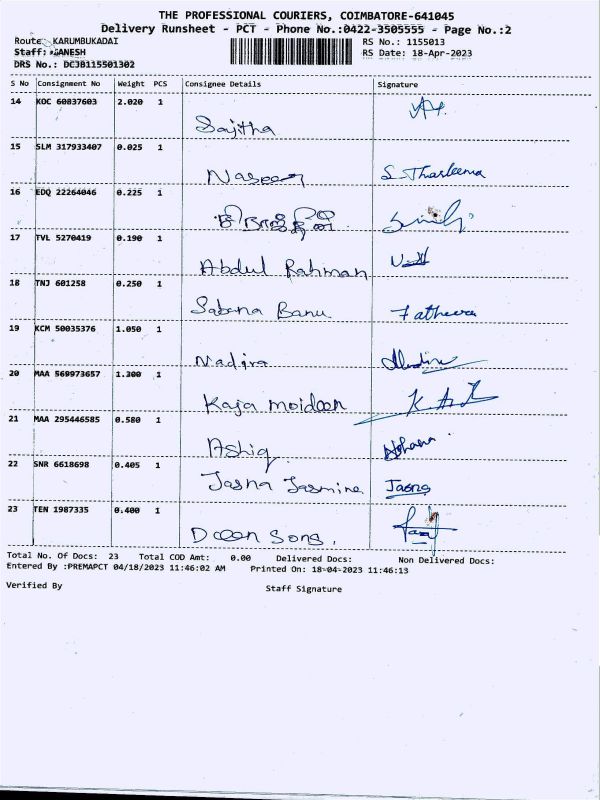 THE PROFESSIONAL COURIERS, COIMBATORE-641045
Delivery Runsheet - PCT - Phone No.:0422-3505555 - Page No.:2
Route: KARUMBUKADAI RS No.: 1155013
Staff: GANESH RS Date: 18-Apr-2023
DRS No.: DCJB115501302
S No Consignment No Weight PCS Consignee Details Signature
14 KOC 60837603 2.020 1
Sajitha
15 SLM 317933407 0.025 1
Naseer S. Tharleema
16 EDQ 22264046 0.225 1
17 TVL 5270419 0.190 1
Abdul Rahman
18 TNJ 601258 0.250 1
Sabana Banu Fatheera
19 KCM 50035376 1.050 1
Nadira
20 MAA 569973657 1.300 1
Kaja moideen
21 MAA 295446585 0.580 1
Ashiq
22 SNR 6618698 0.405 1
Jasna Jasmine Jasna
23 TEN 1987335 0.400 1
Dceen Sons.
Total No. Of Docs: 23 Total COD Amt: 0.00 Delivered Docs: Non Delivered Docs:
Entered By :PREMAPCT 04/18/2023 11:46:02 AM Printed On: 18-04-2023 11:46:13
Verified By Staff Signature